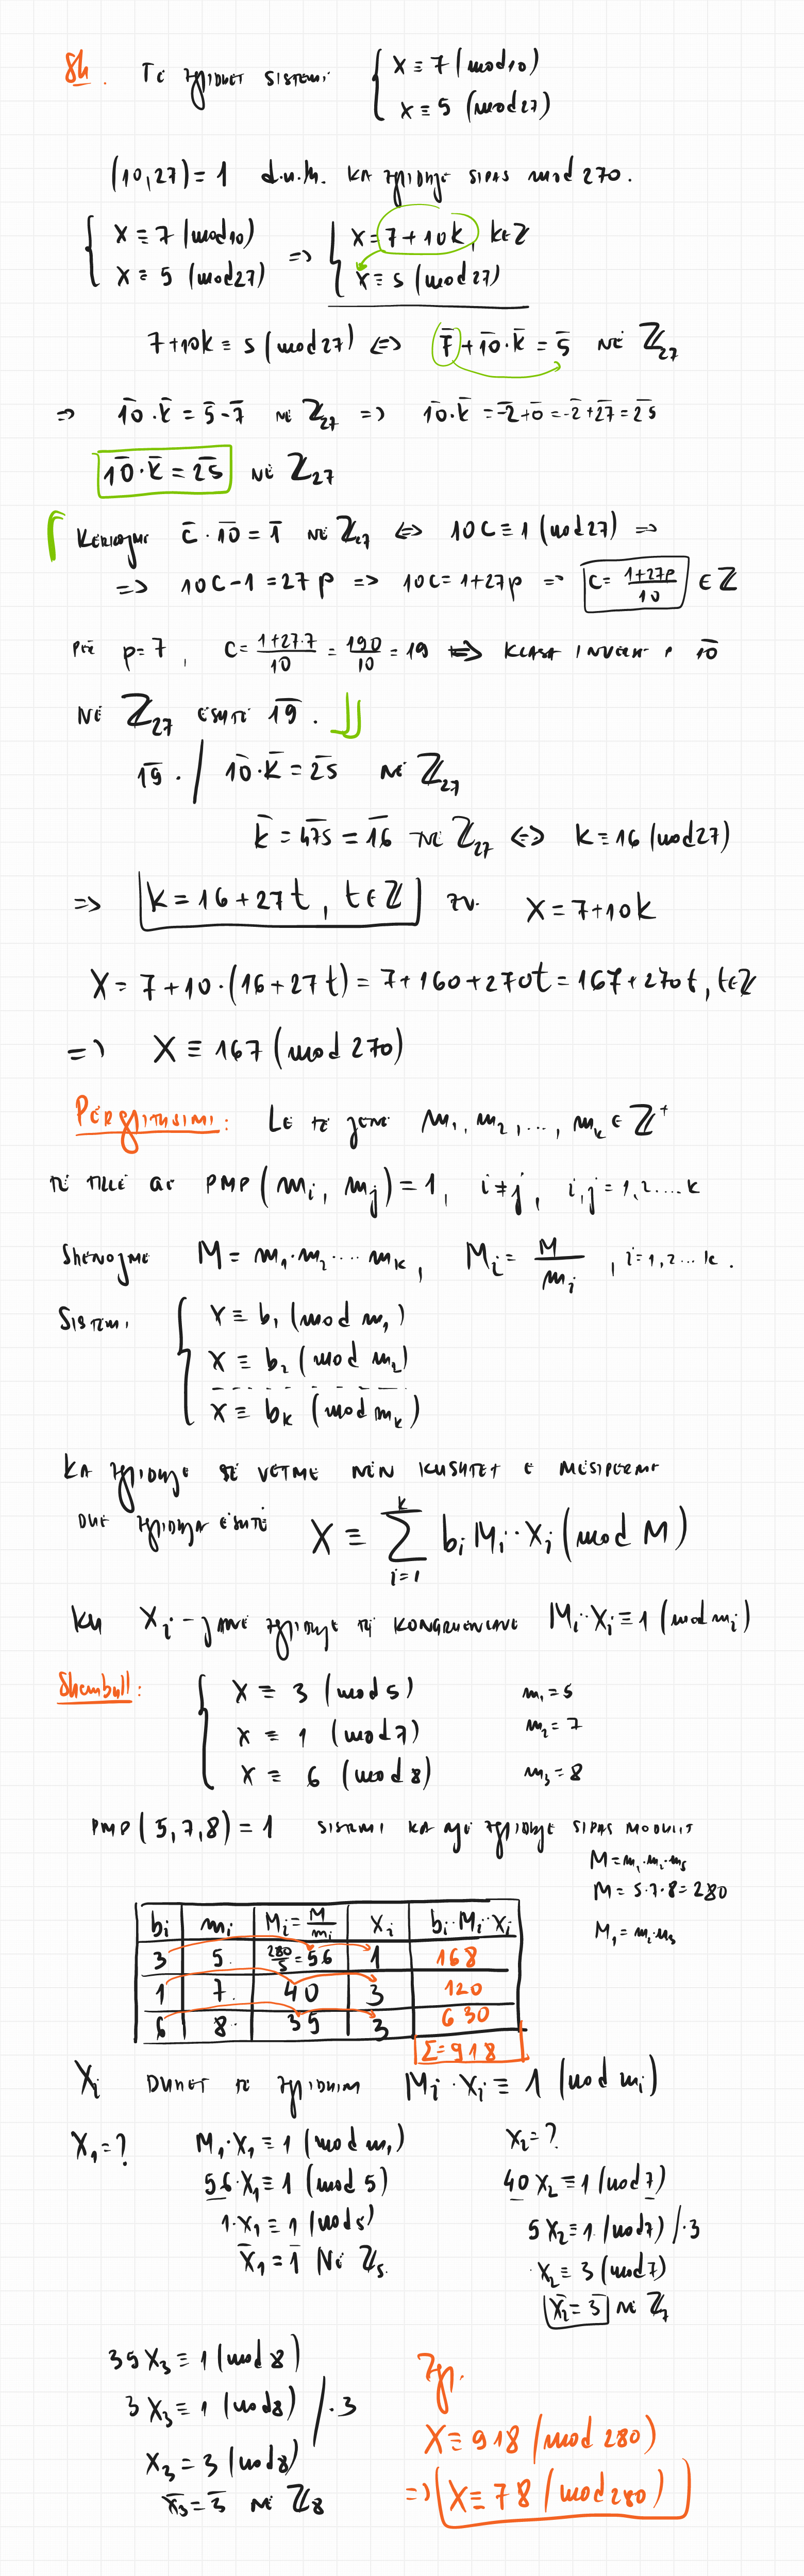 Sh. Të zgjidhet sistemi { x ≡ 7 (mod 10)
x ≡ 5 (mod 27)
(10,27) = 1 d.m.th. ka zgjidhje sipas mod 270.
{ x ≡ 7 (mod 10) => { x = 7 + 10k, k ∈ ℤ
x ≡ 5 (mod 27) x ≡ 5 (mod 27)
7 + 10k ≡ 5 (mod 27) <=> 7̄ + 1̄0̄ · k̄ = 5̄ në ℤ₂₇
=> 1̄0̄ · k̄ = 5̄ - 7̄ në ℤ₂₇ => 1̄0̄ · k̄ = -2̄ + 0̄ = -2̄ + 2̄7̄ = 2̄5̄
1̄0̄ · k̄ = 2̄5̄ në ℤ₂₇
Kërkojmë c̄ · 1̄0̄ = 1̄ në ℤ₂₇ <=> 10c ≡ 1 (mod 27) =>
=> 10c - 1 = 27p => 10c = 1 + 27p => c = (1+27p)/10 ∈ ℤ
për p = 7, c = (1+27·7)/10 = 190/10 = 19 => klasa inverze e 1̄0̄
në ℤ₂₇ është 1̄9̄.
1̄9̄ · / 1̄0̄ · k̄ = 2̄5̄ në ℤ₂₇
k̄ = 4̄7̄5̄ = 1̄6̄ në ℤ₂₇ <=> k ≡ 16 (mod 27)
=> k = 16 + 27t, t ∈ ℤ zv. x = 7 + 10k
x = 7 + 10 · (16 + 27t) = 7 + 160 + 270t = 167 + 270t, t ∈ ℤ
=> x ≡ 167 (mod 270)
Përgjithsimi: Le të jenë m₁, m₂, ..., mₖ ∈ ℤ⁺
të tillë që PMP(mᵢ, mⱼ) = 1, i ≠ j, i, j = 1, 2 .... k
Shënojmë M = m₁ · m₂ ···· mₖ, Mᵢ = M/mᵢ, i = 1, 2 ... k.
Sistemi { x ≡ b₁ (mod m₁)
x ≡ b₂ (mod m₂)
- - - - - - - - -
x ≡ bₖ (mod mₖ)
ka zgjidhje të vetme nën kushtet e mësipërme
dhe zgjidhja është x ≡ ∑ᵢ₌₁ᵏ bᵢ Mᵢ · xᵢ (mod M)
ku xᵢ - janë zgjidhje të kongruencave Mᵢ · xᵢ ≡ 1 (mod mᵢ)
Shembull: { x ≡ 3 (mod 5) m₁ = 5
x ≡ 1 (mod 7) m₂ = 7
x ≡ 6 (mod 8) m₃ = 8
PMP(5, 7, 8) = 1 sistemi ka një zgjidhje sipas modulit
M = m₁ · m₂ · m₃
M = 5 · 7 · 8 = 280
M₁ = m₂ · m₃
bᵢ mᵢ Mᵢ = M/mᵢ xᵢ bᵢ · Mᵢ · xᵢ
3 5 280/5 = 56 1 168
1 7 40 3 120
6 8 35 3 630
Σ = 918
xᵢ duhet të zgjidhim Mᵢ · xᵢ ≡ 1 (mod mᵢ)
x₁ = ? M₁ · x₁ ≡ 1 (mod m₁)
56 · x₁ ≡ 1 (mod 5)
1 · x₁ ≡ 1 (mod 5)
x̄₁ = 1̄ në ℤ₅
x₂ = ?
40 x₂ ≡ 1 (mod 7)
5 x₂ ≡ 1 (mod 7) / · 3
x₂ ≡ 3 (mod 7)
x̄₂ = 3̄ në ℤ₇
35 x₃ ≡ 1 (mod 8)
3 x₃ ≡ 1 (mod 8) / · 3
x₃ = 3 (mod 8)
x̄₃ = 3̄ në ℤ₈
Zgj.
x ≡ 918 (mod 280)
=> x ≡ 78 (mod 280)